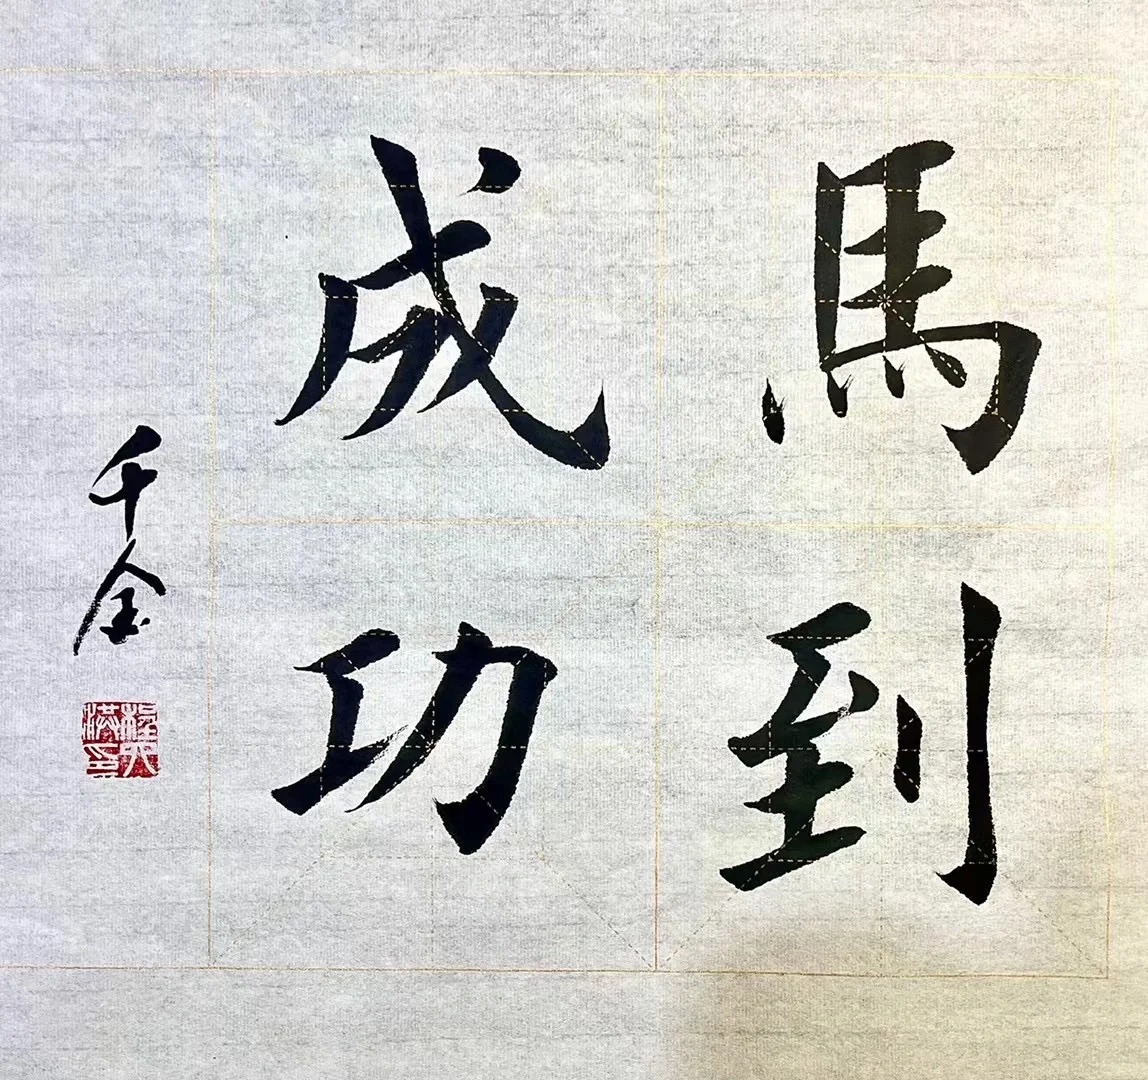 馬到
成功
千金